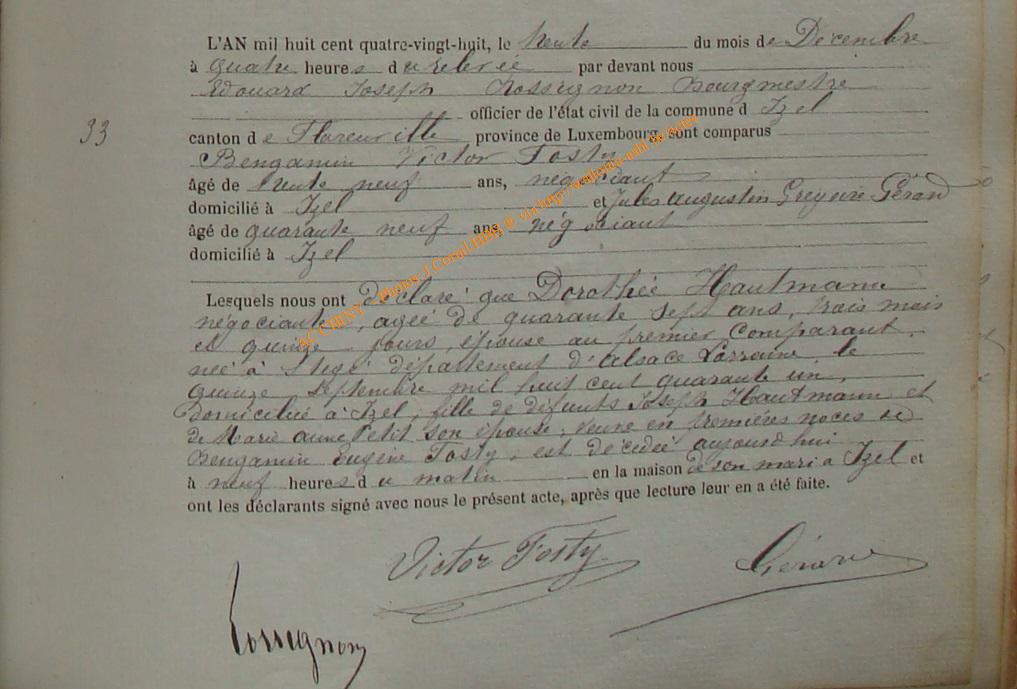 L'AN mil huit cent quatre-vingt-huit, le trente du mois de Décembre
à quatre heures du relevée par devant nous
Edouard Joseph Rossignon Bourgmestre
officier de l'état civil de la commune d Izel
33
canton de Florenville province de Luxembourg, sont comparus
Bengamin Victor Fosty
âgé de trente neuf ans, négociant
domicilié à Izel et Jules Augustin Grégoire Gérard
âgé de quarante neuf ans négociant
domicilié à Izel
Lesquels nous ont déclaré que Dorothée Hautmann
négociante, agée de quarante sept ans, trois mois
et quinze jours, épouse au premier comparant,
née à département d'Alsace Lorraine, le
quinze septembre mil huit cent quarante un,
domiciliée à Izel, fille de défunts Joseph Hautmann et
de Marie anne Petit son épouse; veuve en premières noces de
Bengamin Eugène Fosty, est décédée aujourd'hui
à neuf heures du matin en la maison de son mari à Izel et
ont les déclarants signé avec nous le présent acte, après que lecture leur en a été faite.
Victor Fosty
Gérard
Rossignon